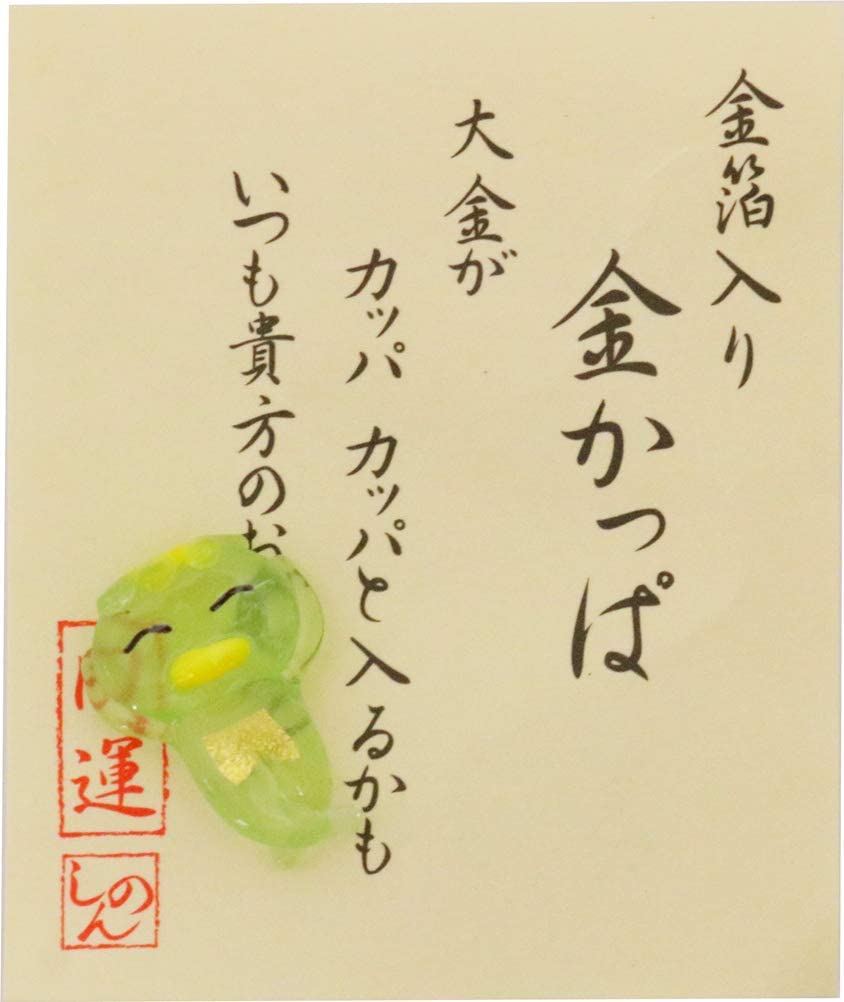 金箔入り
金かっぱ
大金が
カッパ カッパと入るかも
いつも貴方のお
運
しのん